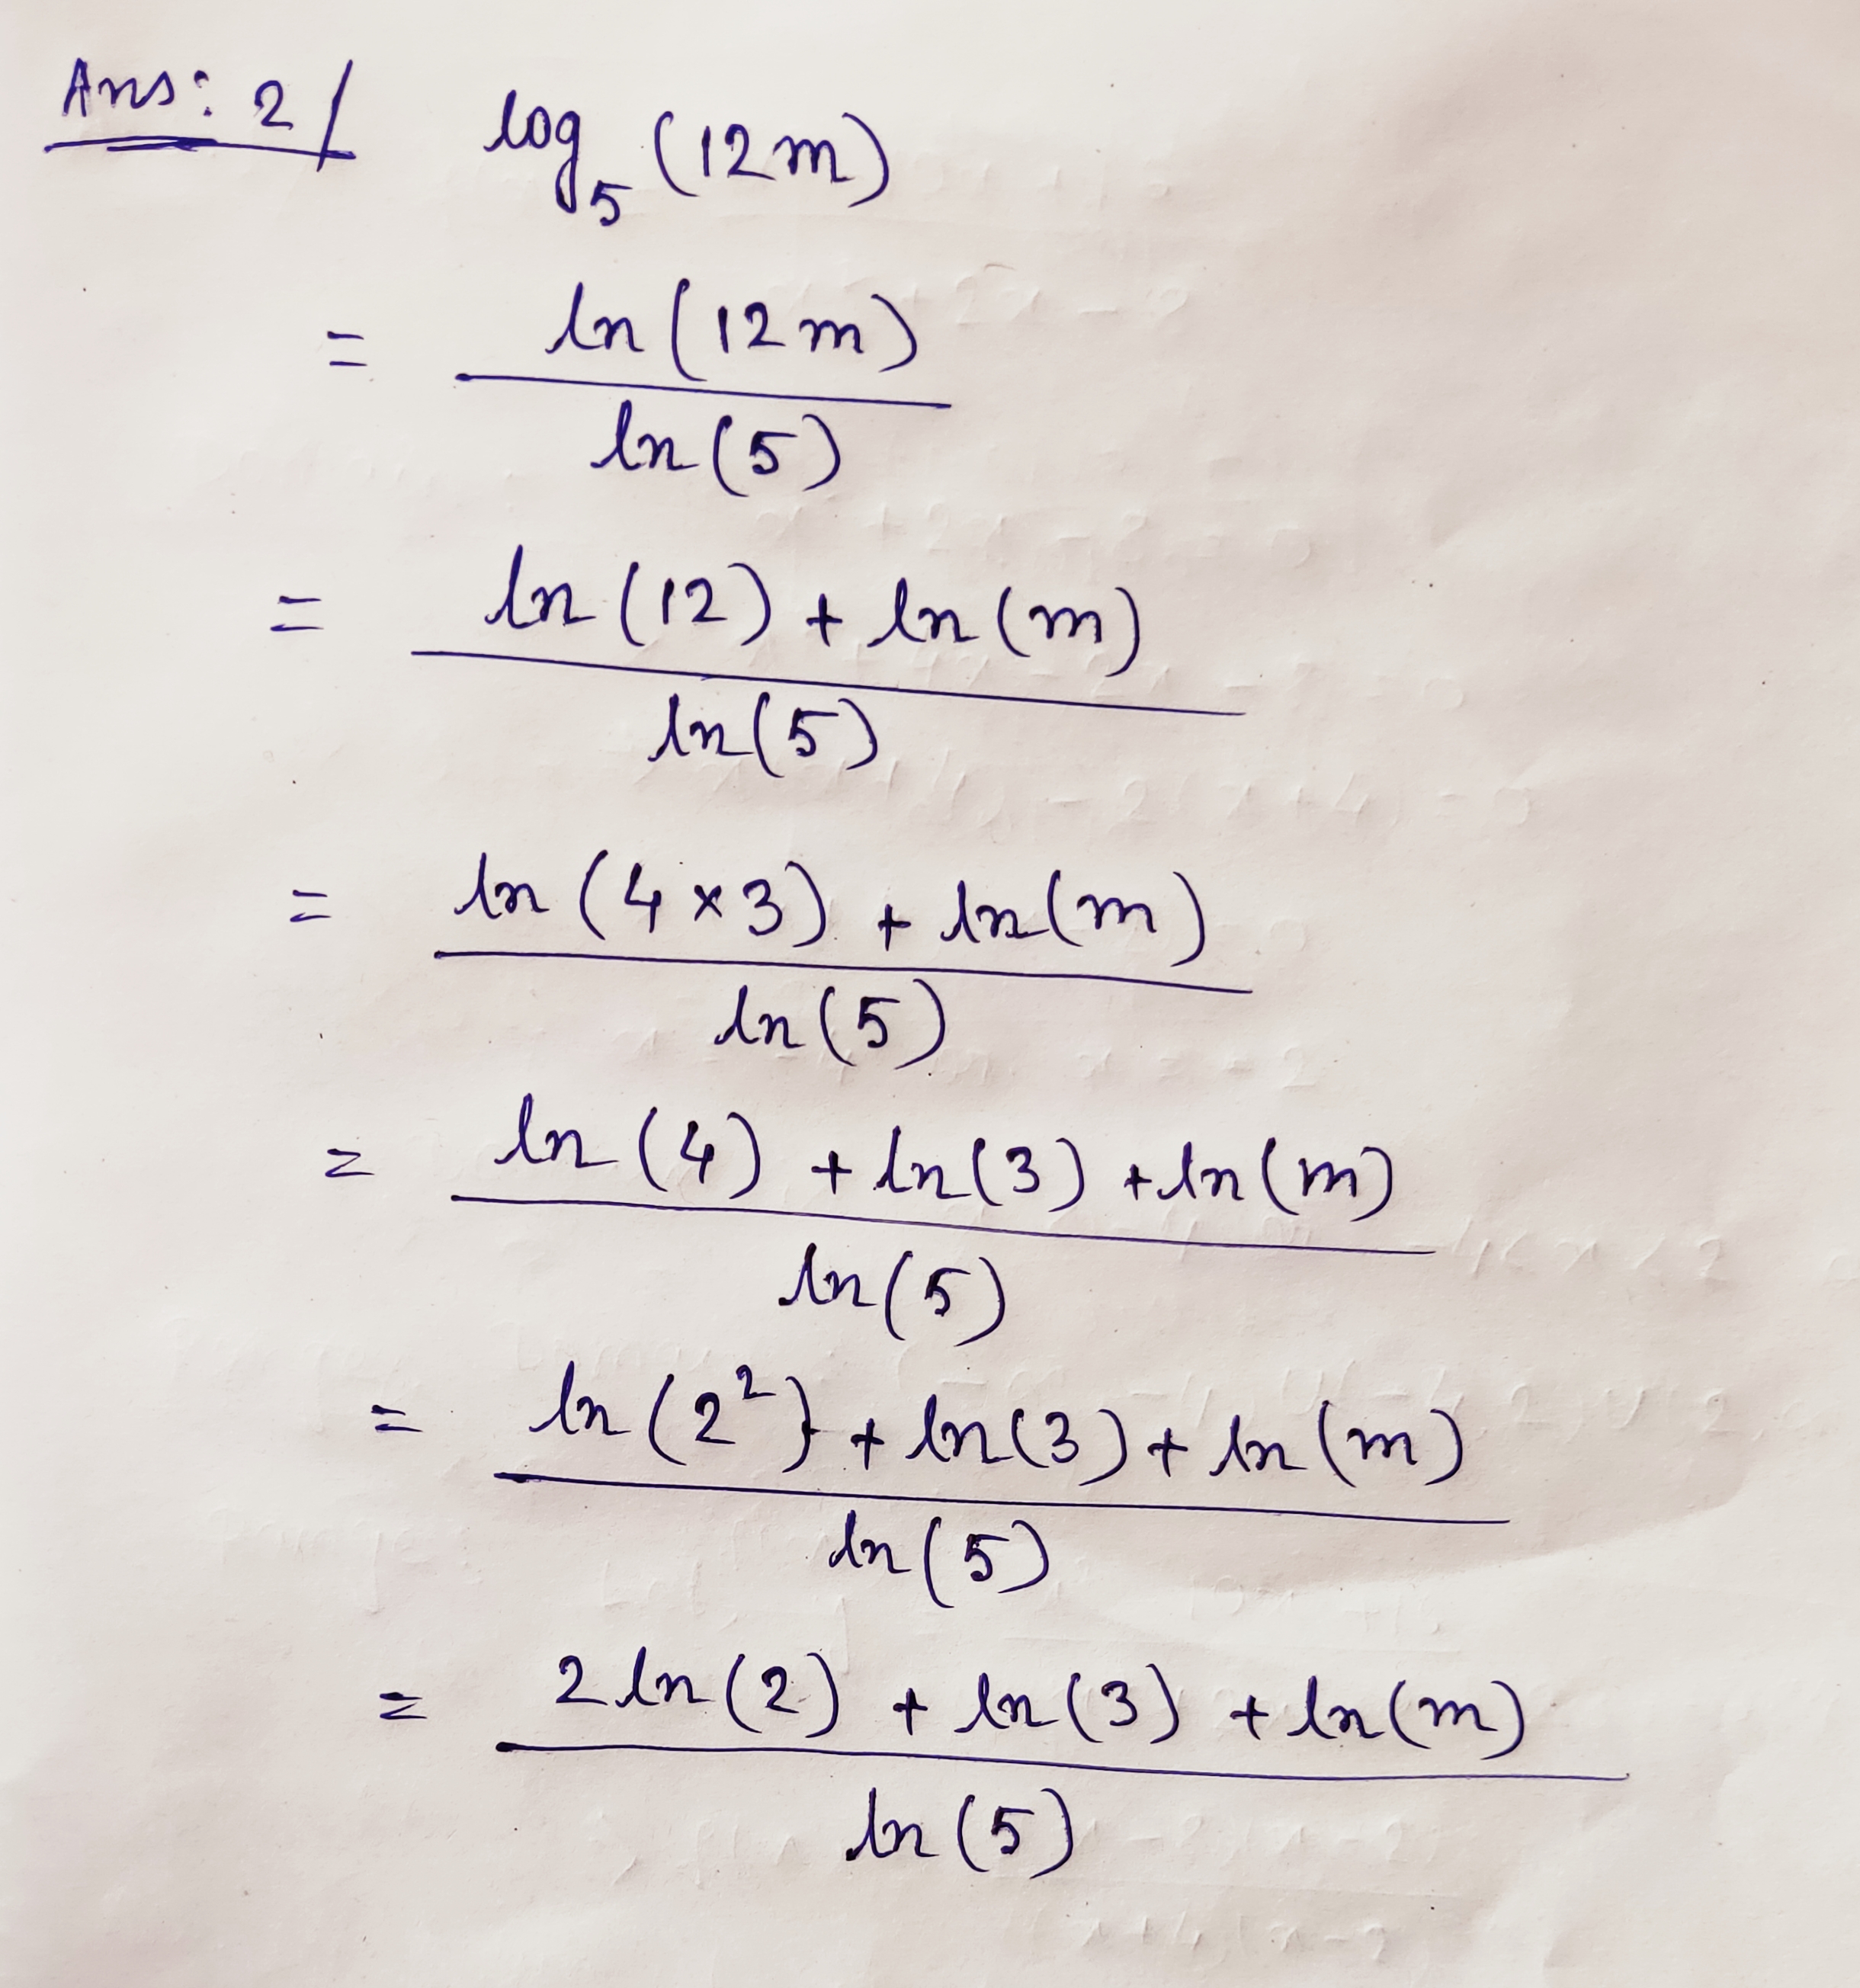 Ans: 2/ log₅ (12m)
= ln(12m) / ln(5)
= ln(12) + ln(m) / ln(5)
= ln(4×3) + ln(m) / ln(5)
= ln(4) + ln(3) + ln(m) / ln(5)
= ln(2²) + ln(3) + ln(m) / ln(5)
= 2 ln(2) + ln(3) + ln(m) / ln(5)